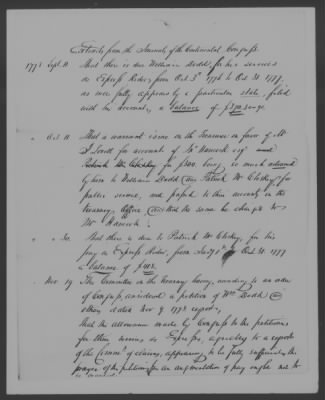 Extracts from the Journals of the Continental Congress.
1778 Sept. 11 That there is due William Dodd, for his services
as Express Rider, from Oct. 5th 1776 to Oct. 31. 1777,
as more fully appears by a particular state, filed
with his accounts, a balance of
" Oct. 11 That a warrant issue on the Treasurer in favor of Mr
J. Lovell for account of Mr Hancock Esq and
for $400 being so much advanced
by him to William Dodd & Patrick McCloskey for
public service, and passed to their accounts in the
treasury office and that the same be charged to
Mr Hancock.
" " 30. That there is due to Patrick McCloskey, for his
pay as Express Rider, from to Oct. 31. 1777
a balance of
Nov 19 The Committee on the Treasury having, according to an order
of Congress, considered a petition of Wm Dodd &
others dated Nov 9 1778 report,
That the allowance made by Congress to the petitioners
for their services as Expresses, agreeably to a report
of the Commrs of claims, appearing to be fully sufficient, the
prayer of the petitioners for an augmentation of pay ought not to
be granted.